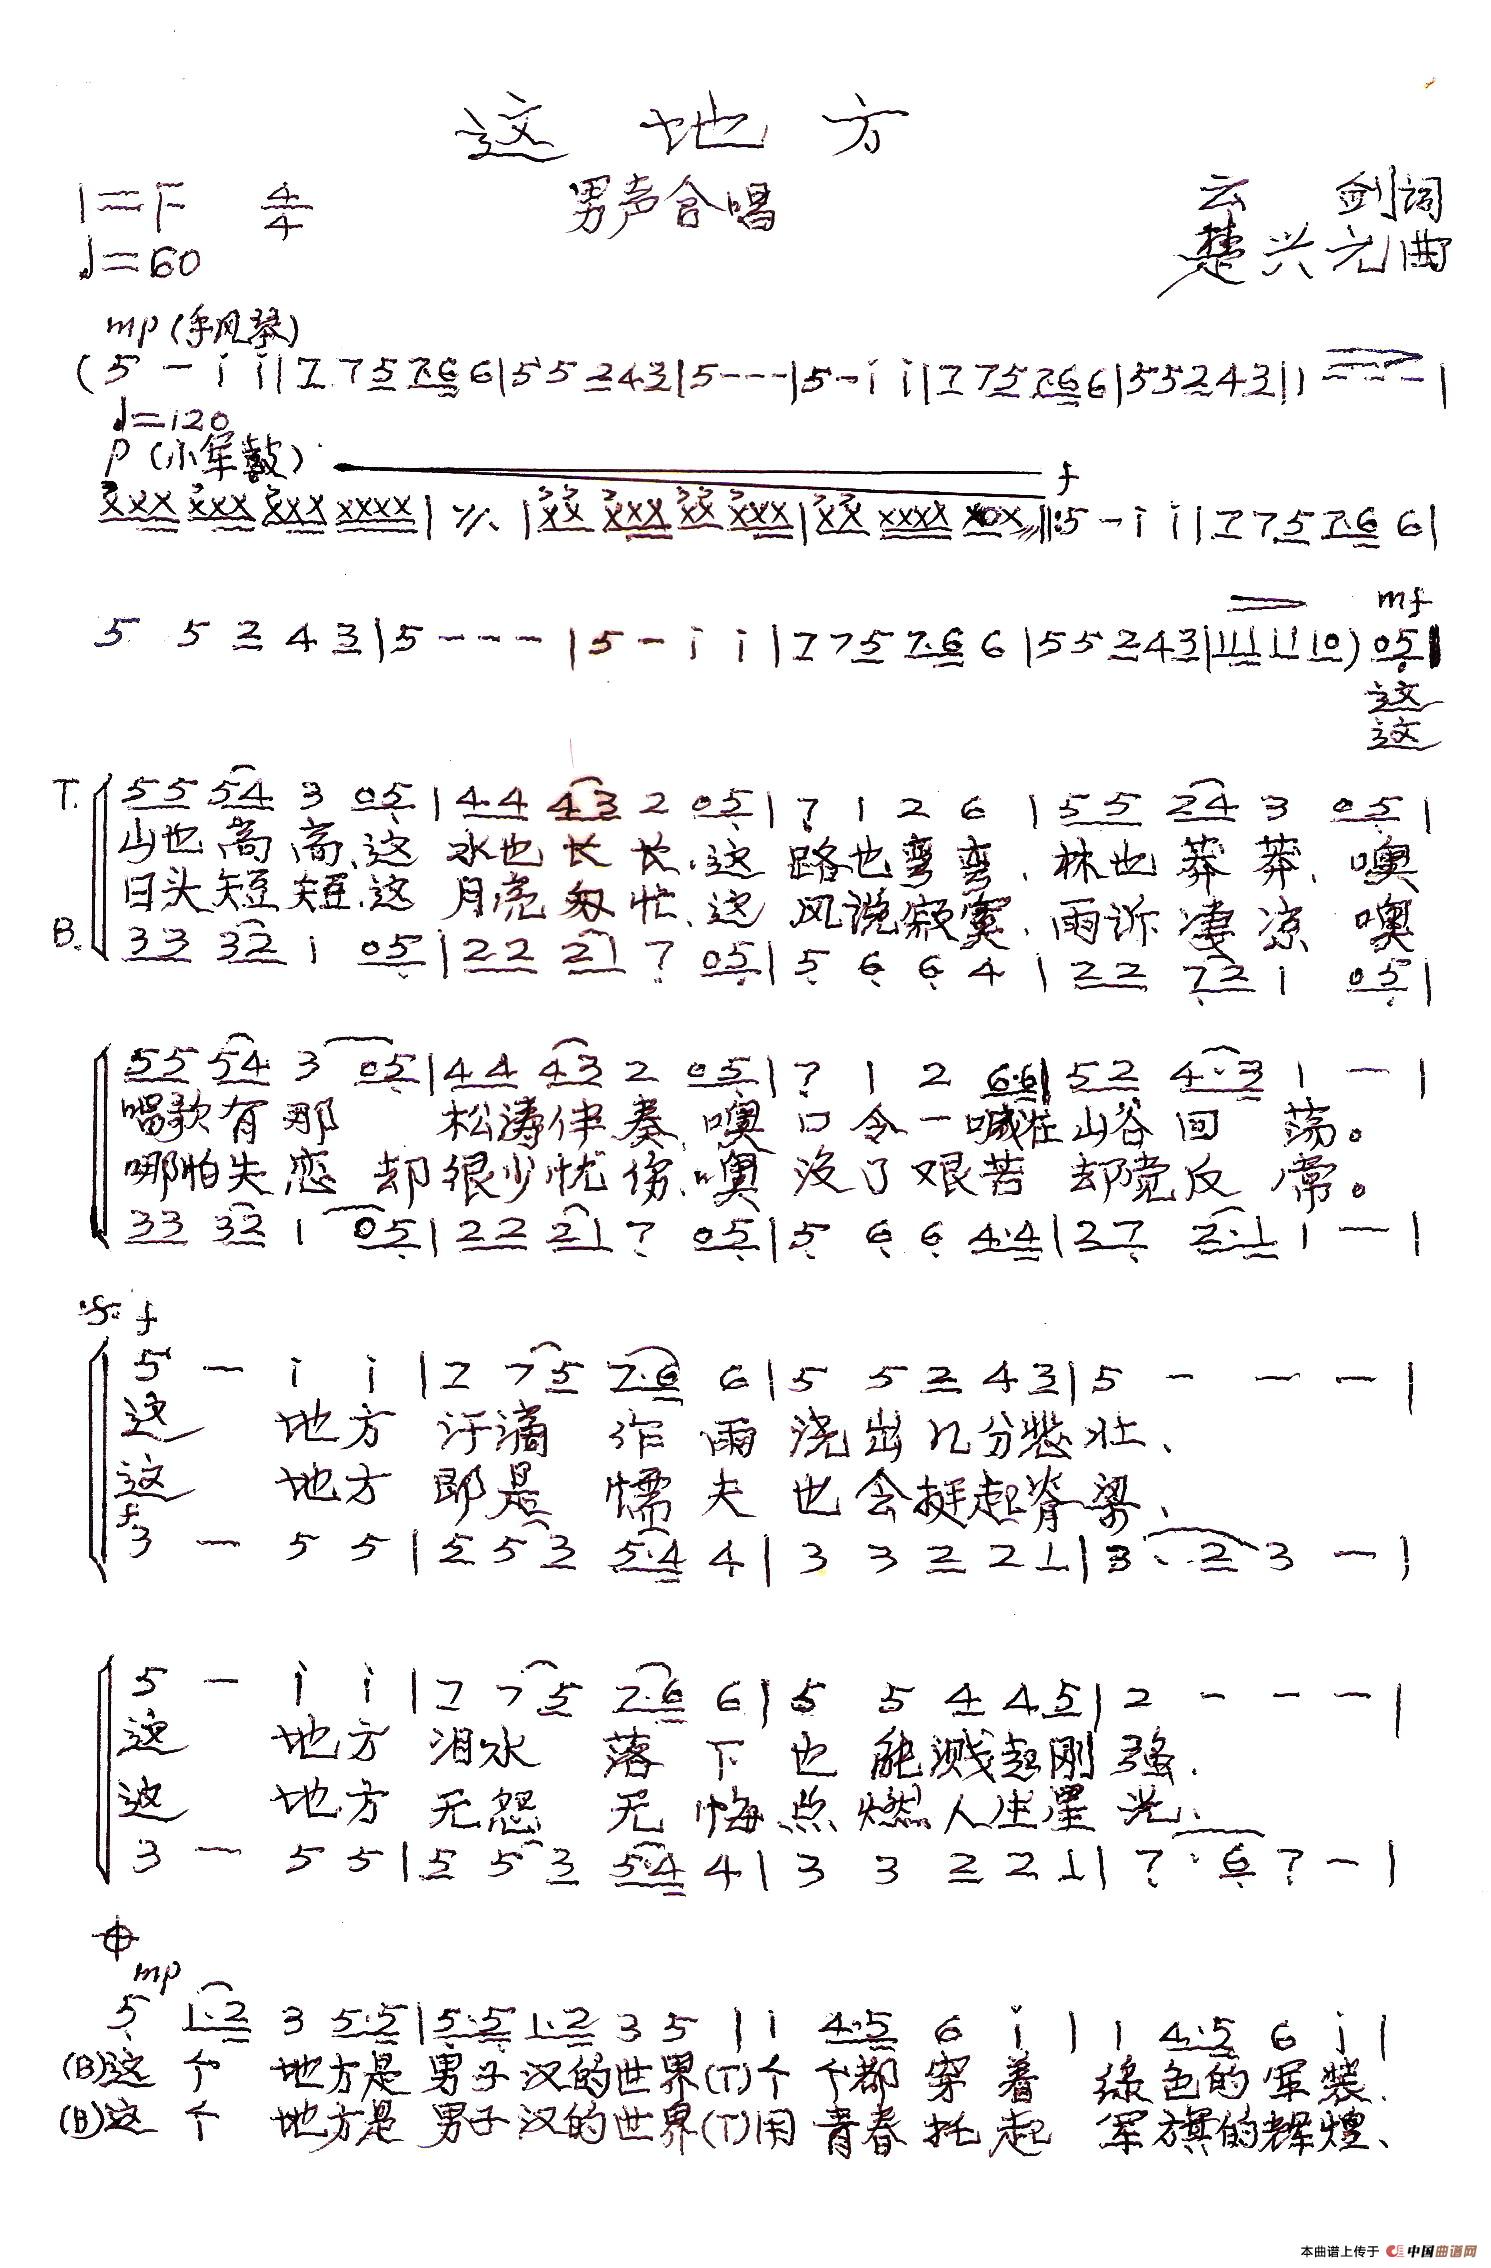 这 地 方
1=F 4/4 男声合唱 云 剑词
♩=60 楚兴元曲
mp (手风琴)
( 5 - i i | 7 7 5 7·6 6 | 5 5 2 4 3 | 5 - - - | 5 - i i | 7 7 5 7·6 6 | 5 5 2 4 3 | 1 - - - |
♩=120
p (小军鼓) f
3 3 3
XXX XXX XXX XXXX | ٪ | XX XXX XX XXX | XX XXXX X0X ‖: 5 - i i | 7 7 5 7·6 6 |
mf
5 5 2 4 3 | 5 - - - | 5 - i i | 7 7 5 7·6 6 | 5 5 2 4 3 | 11 11 11 10 ) 05
这
这
T. 55 54 3 05 | 44 43 2 05 | 7 1 2 6 | 55 24 3 05 |
山也高高、这 水也长长、这 路也弯弯、林也莽莽、噢
日头短短、这 月亮匆忙、这 风说寂寞、雨诉凄凉 噢
B. 33 32 1 05 | 22 21 7 05 | 5 6 6 4 | 22 72 1 05 |
55 54 3 05 | 44 43 2 05 | 7 1 2 6·6 | 52 4·3 1 - |
唱歌有那 松涛伴奏、噢 口令一喊在山谷回 荡。
哪怕失恋 却很少忧伤、噢 没了艰苦 却觉反 常。
33 32 1 05 | 22 21 7 05 | 5 6 6 4·4 | 27 2·1 1 - |
f
5 - i i | 7 7 5 7·6 6 | 5 5 2 4 3 | 5 - - - |
这 地方 汗滴 作雨 浇出几分悲壮、
这 地方 即是 懦夫 也会挺起脊梁、
f
3 - 5 5 | 5 5 3 5·4 4 | 3 3 2 2 1 | 3 · 2 3 - |
5 - i i | 7 7 5 7·6 6 | 5 5 4 4 5 | 2 - - - |
这 地方 泪水 落下 也能溅起刚强、
这 地方 无怨 无悔点燃人生星光、
3 - 5 5 | 5 5 3 5·4 4 | 3 3 2 2 1 | 7 · 6 7 - |
mp
5 1·2 3 5·5 | 5·5 1·2 3 5 | 1 4·5 6 i | 1 4·5 6 i |
(B)这 个 地方是 男子汉的世界(T)个个都 穿着 绿色的军装、
(B)这 个 地方是 男子汉的世界(T)用青春托起 军旗的辉煌、
本曲谱上传于 中国曲谱网